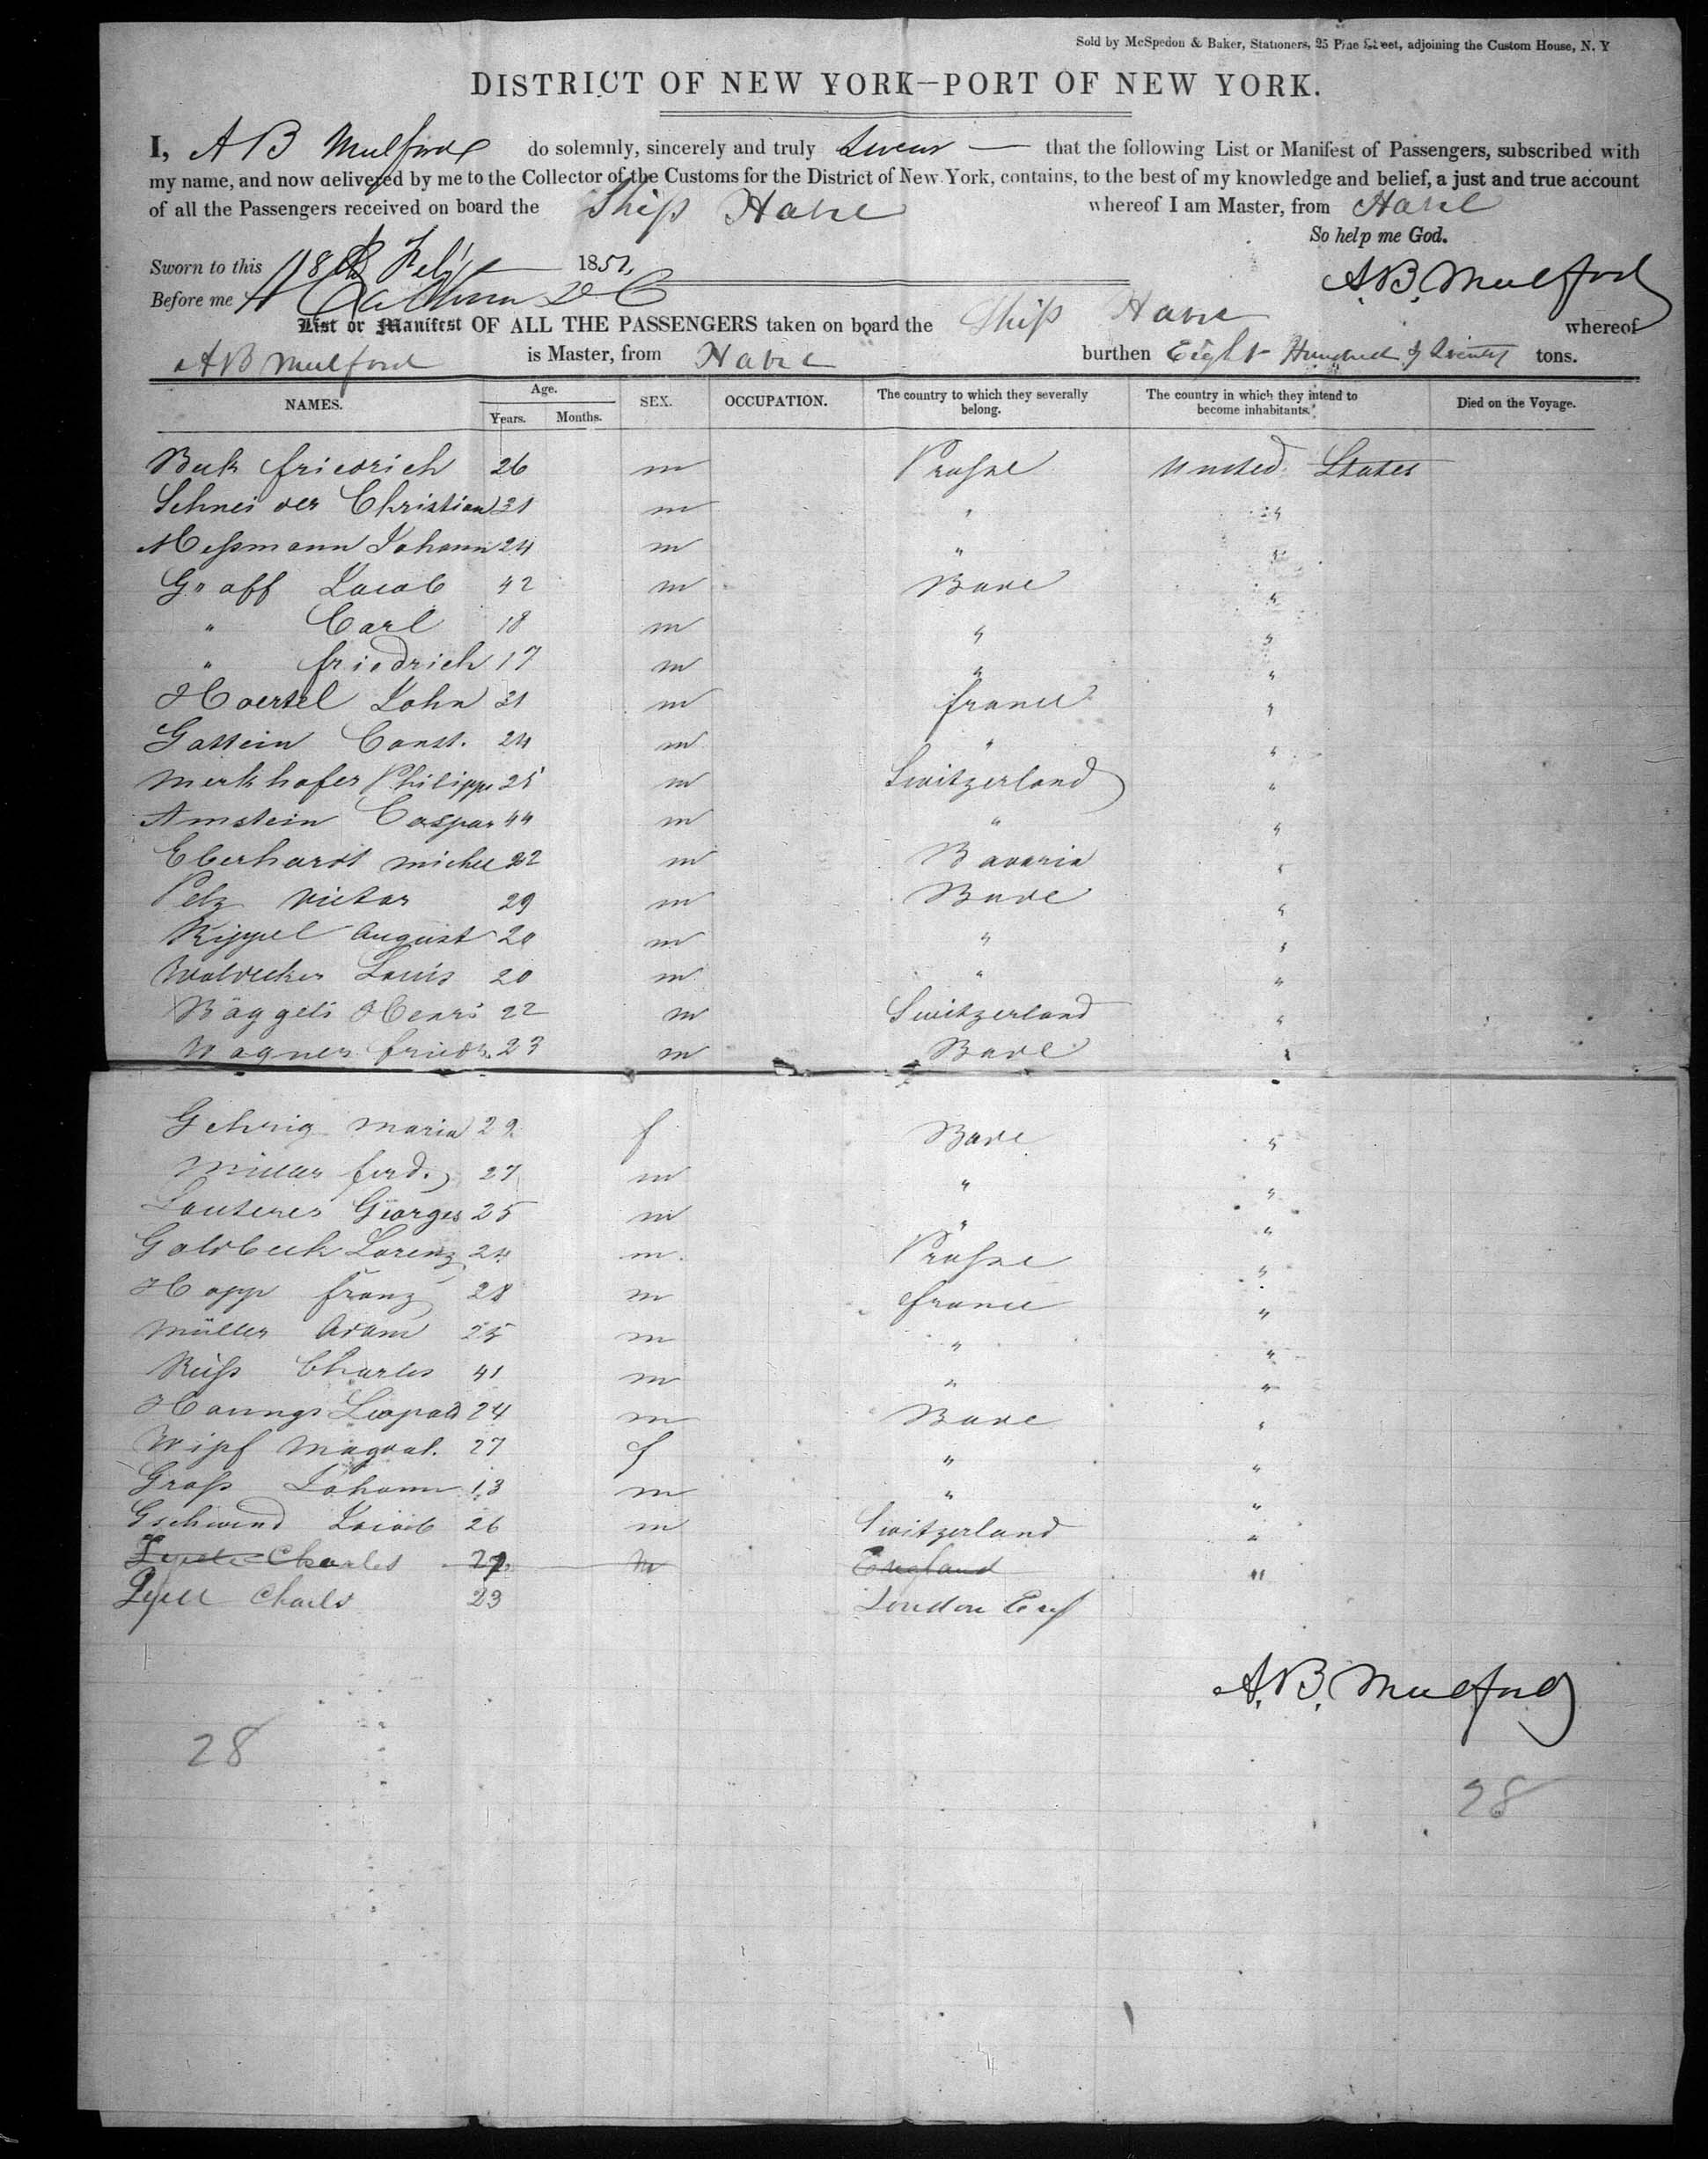 Sold by McSpedon & Baker, Stationers, 25 Pine Street, adjoining the Custom House, N. Y
DISTRICT OF NEW YORK—PORT OF NEW YORK.
I, A B Mulford do solemnly, sincerely and truly Swear — that the following List or Manifest of Passengers, subscribed with
my name, and now delivered by me to the Collector of the Customs for the District of New York, contains, to the best of my knowledge and belief, a just and true account
of all the Passengers received on board the Ship Havre whereof I am Master, from Havre
So help me God.
Sworn to this 18th Feby 1852
Before me A.B. Mulford
List or Manifest OF ALL THE PASSENGERS taken on board the Ship Havre whereof
A B Mulford is Master, from Havre burthen Eight Hundred & Twenty tons.
NAMES. Age. SEX. OCCUPATION. The country to which they severally belong. The country in which they intend to become inhabitants. Died on the Voyage.
Years. Months.
Beck friedrich 26 m Prusse United States
Schneider Christian 31 m " "
Messmann Johann 24 m " "
Graff Jacob 42 m Bade "
" Carl 18 m " "
" friedrich 17 m " "
Haertel John 31 m france "
Gassein Const. 24 m " "
Merkhofer Philipp 25 m Switzerland "
Amstein Caspar 44 m " "
Eberhardt michel 22 m Bavaria "
Pelz victor 29 m Bade "
Rippel August 20 m " "
Woldecker Louis 20 m " "
Bäggeli Henri 22 m Switzerland "
Wagner friedr. 23 m Bade "
Gehrig maria 29 f Bade "
Müller ferd. 27 m " "
Lauterer Georges 25 m " "
Goldbeck Lorenz 24 m Prusse "
Happ franz 28 m france "
Müller Adam 25 m " "
Reiss Charles 41 m " "
Haungs Leopold 24 m Bade "
Wipf Magdal. 27 f " "
Gross Johann 13 m " "
Gschwind Jacob 26 m Switzerland "
Charles 27 m England "
Lyell Charls 23 London Eng
A. B. Mulford
28
28